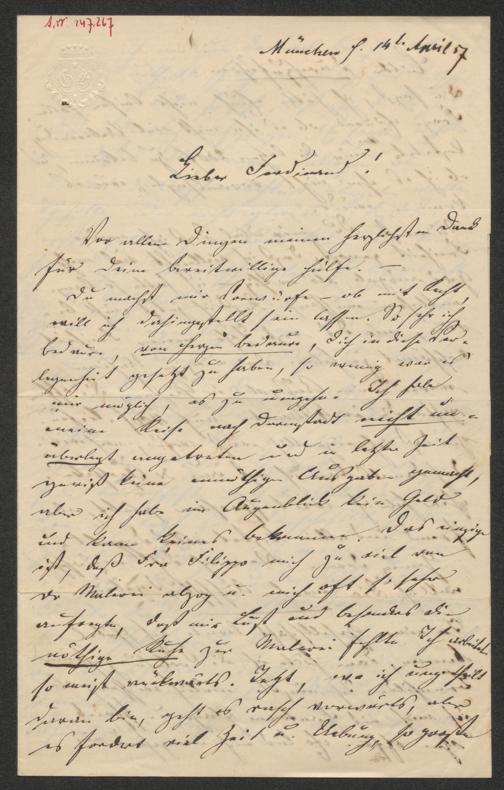 A.N. 247.267
München d. 14t April 57
Lieber Ferdinand!
Vor allen Dingen meinen herzlichsten Dank
für Deine bereitwillige Hülfe. —
Du machst mir Vorwürfe – ob mit Recht,
will ich dahingestellt sein lassen. So sehr ich
bedaure, von Herzen bedaure, Dich in diese Ver-
legenheit gesetzt zu haben, so wenig war es
mir möglich, es zu umgehn. Ich habe
meine Reise nach Darmstadt nicht un-
überlegt angetreten und in letzter Zeit
gewiß keine unnöthigen Ausgaben gemacht,
aber ich habe im Augenblick kein Geld
und kann keines bekommen. Das einzige
ist, daß Fra Filippo mich zu viel von
der Malerei abzog u. mich oft so sehr
aufregte, daß mir Lust und besonders die
nöthige Ruhe zur Malerei fehlte. Ich arbeitete
so meist rückwärts. Jetzt, wo ich ungetheilt
daran bin, geht es rasch vorwärts, aber
es fordert viel Zeit u. Uebung, so große